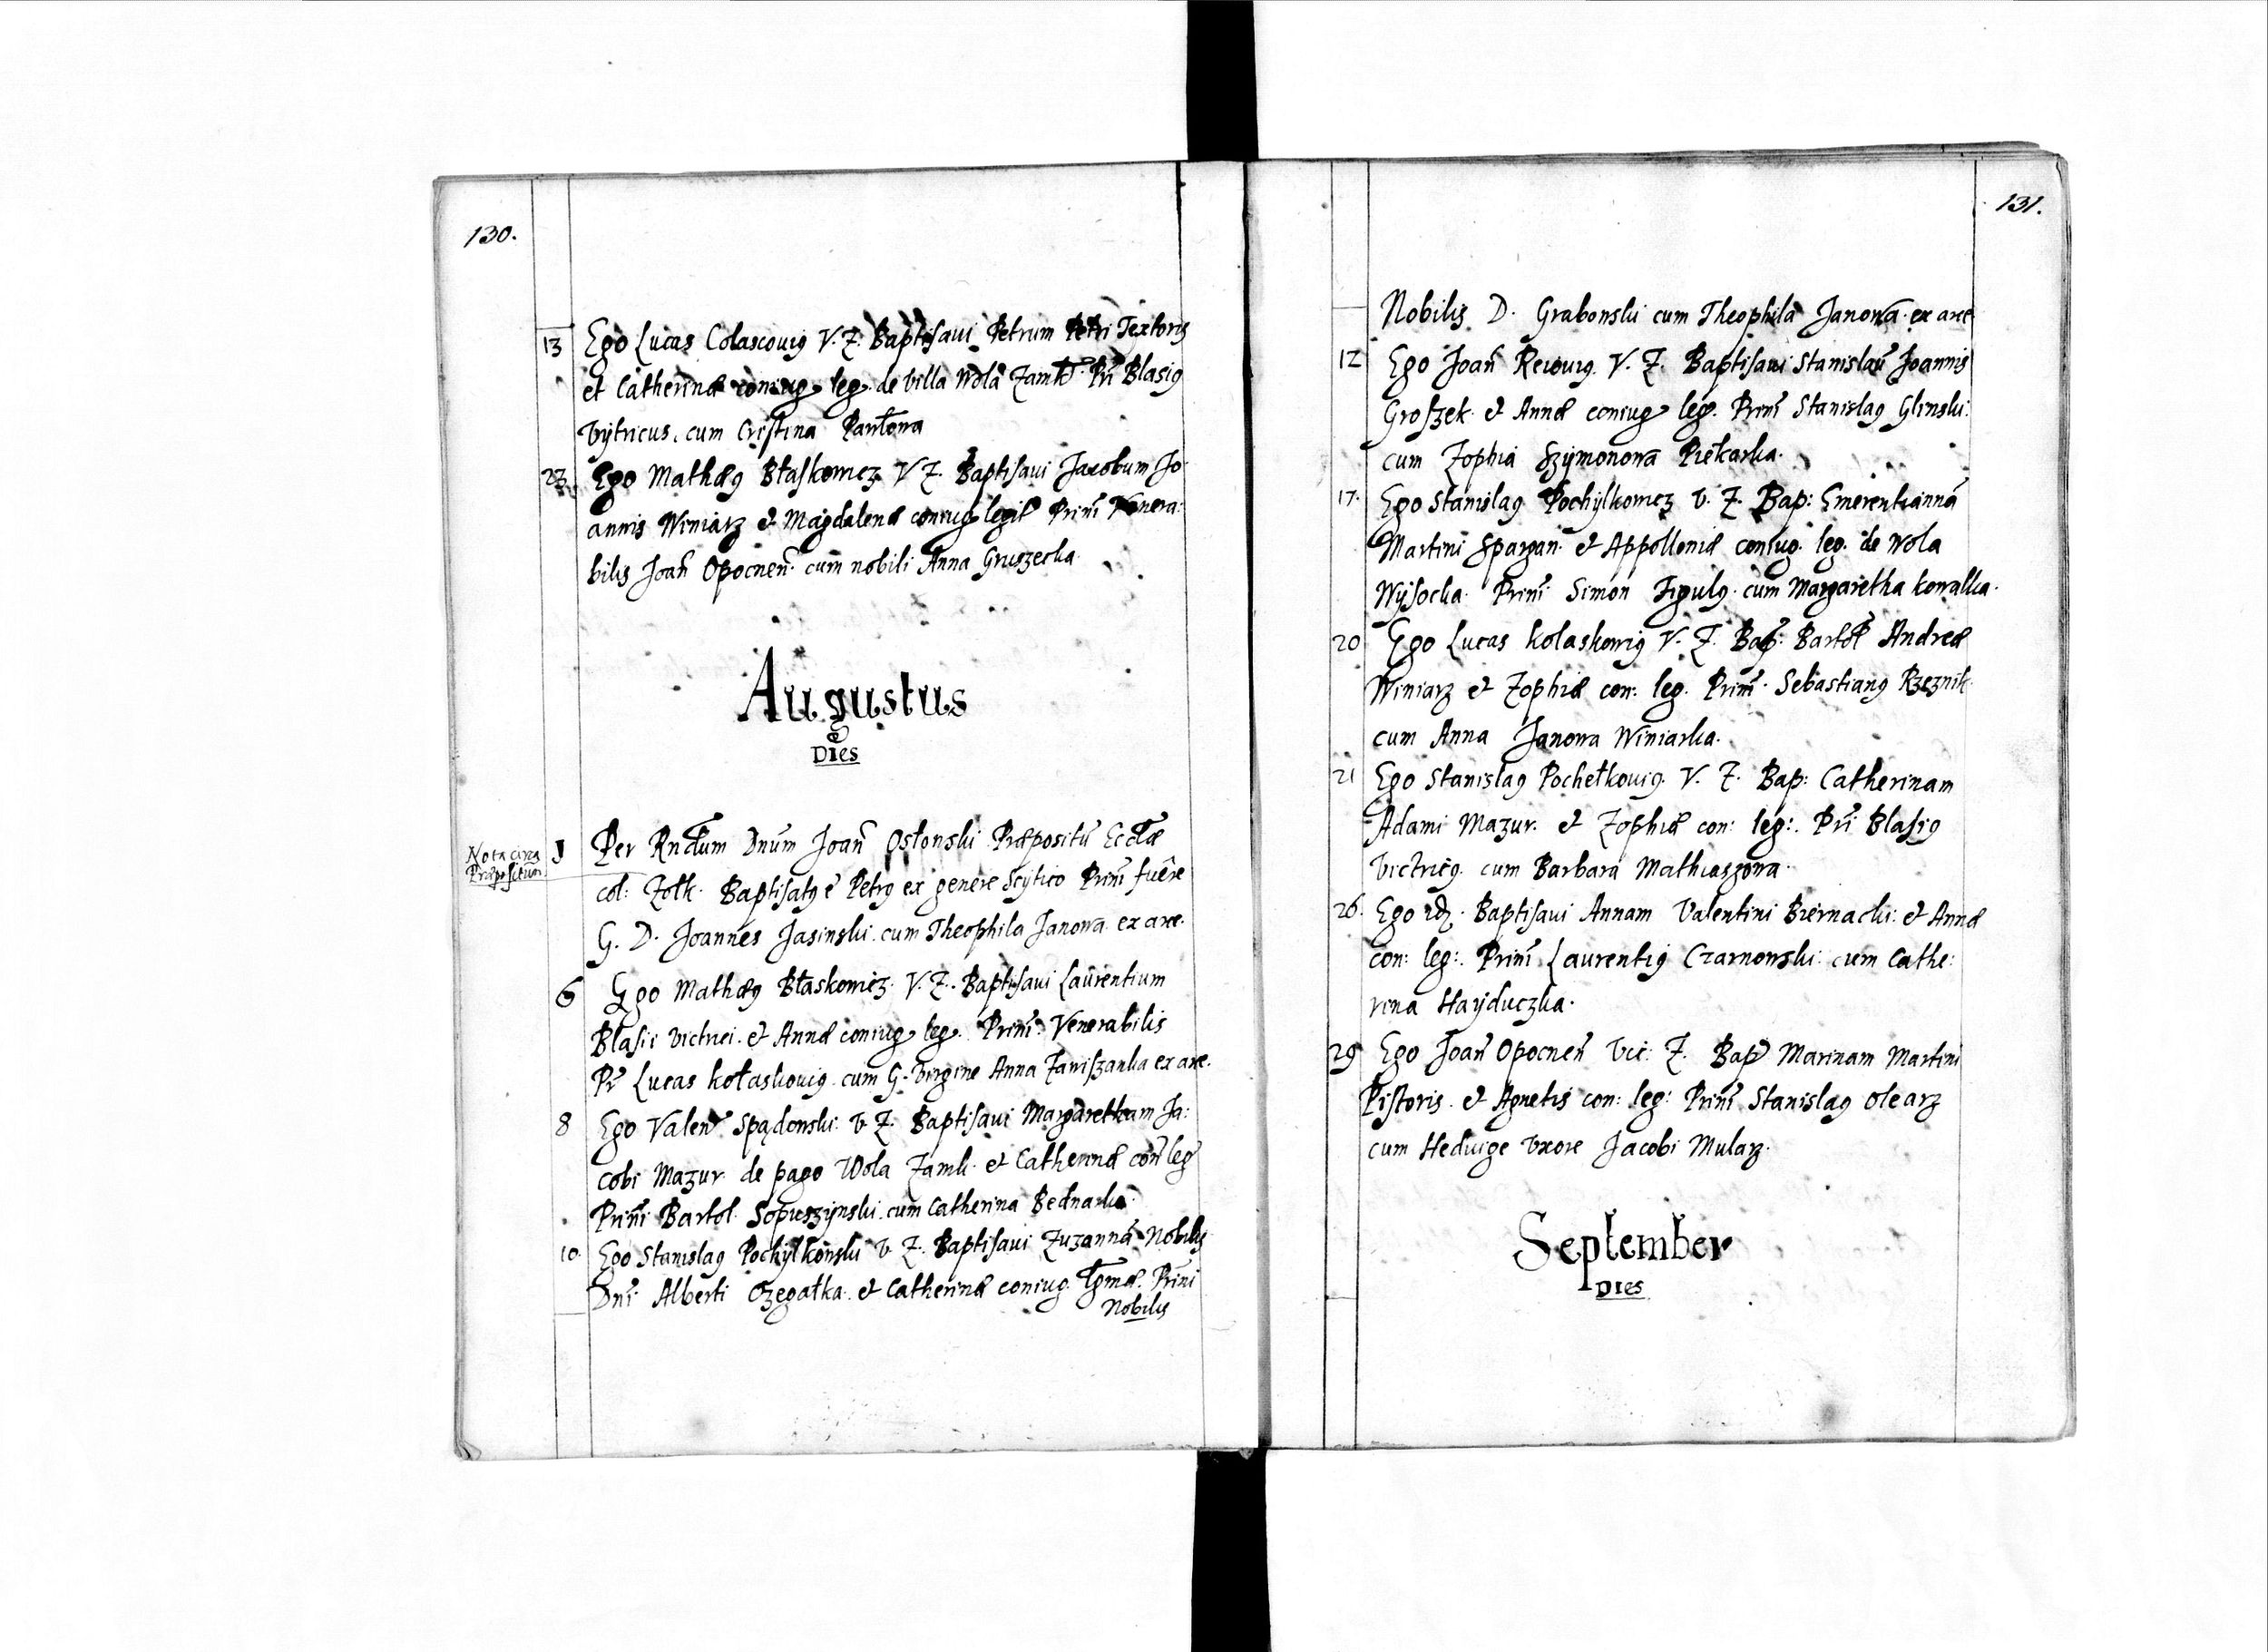 130.
13 Ego Lucas Colascouig V. Z. Baptisaui Petrum Petri Textoris
et Catherinæ coniug leg. de villa Wola Zamk Pri Blasig
Vytricus cum Cristina Pawłowa
23 Ego Mathæg Błaskowicz V Z. Baptisaui Jacobum Jo-
annis Winiarz et Magdalenæ coniug legit Prini Venera-
bilis Joan Opocnen. cum nobili Anna Gruszecka
Augustus
Dies
Nota circa
Præpositum
1 Per Rndum Dnum Joan Ostonski Præpositu Eccłæ
col: Zołk. Baptisatg e Petrg ex genere Scytico Prini fuere
G. D. Joannes Jasinski cum Theophila Janowa ex arce.
6 Ego Mathæg Błaskowicz V. Z. Baptisaui Laurentium
Błasii victrici et Annæ coniug leg. Prini Venerabilis
Pr Lucas kołaskouig cum G. Virgine Anna Zawiszanka ex arce.
8 Ego Valen Spądonski V. Z. Baptisaui Margaretham Ja:
cobi Mazur de pago Wola Zamk. et Catherinæ con leg
Prini Bartol. Sopuszynski cum Catherina Bednarka.
10. Ego Stanislag Pochylkonski V. Z. Baptisaui Zuzannã Nobilis
Dni Alberti Ozegałka et Catherinæ coniug. Prini
Nobilis
131.
Nobilis D. Grabonski cum Theophila Janowa ex arce
12 Ego Joan Rewuig V. Z. Baptisaui Stanislau Joannis
Groszek et Annæ coniug leg. Prini Stanislag Glinski
cum Zophia Szymonowa Piekarka.
17. Ego Stanislag Pochylkowicz V. Z. Bap: Emerentiannã
Martini Spargan. et Appolloniæ coniug. leg. de Wola
Wysocka. Prini Simon Figulg. cum Margaretha kowalka.
20 Ego Lucas kolaskowig V. Z. Bap: Bartol Andreæ
Winiarz et Zophiæ con: leg. Prini Sebastiang Rzeznik
cum Anna Janowa Winiarka.
21 Ego Stanislag Pochełkouig V. Z. Bap: Catherinam
Adami Mazur. et Zophiæ con: leg: Pri Blasig
victricg. cum Barbara Mathiaszowa.
26. Ego idz. Baptisaui Annam Valentini Biernacki et Annæ
con: leg: Prini Laurentig Czarnowski cum Cathe:
rina Hayduczka.
29 Ego Joan Opocnen Vic: Z. Bap Marinam Martini
Pistoris. et Agnetis con: leg: Prini Stanislag Olearz
cum Heduige Vxore Jacobi Mularz.
September
Dies